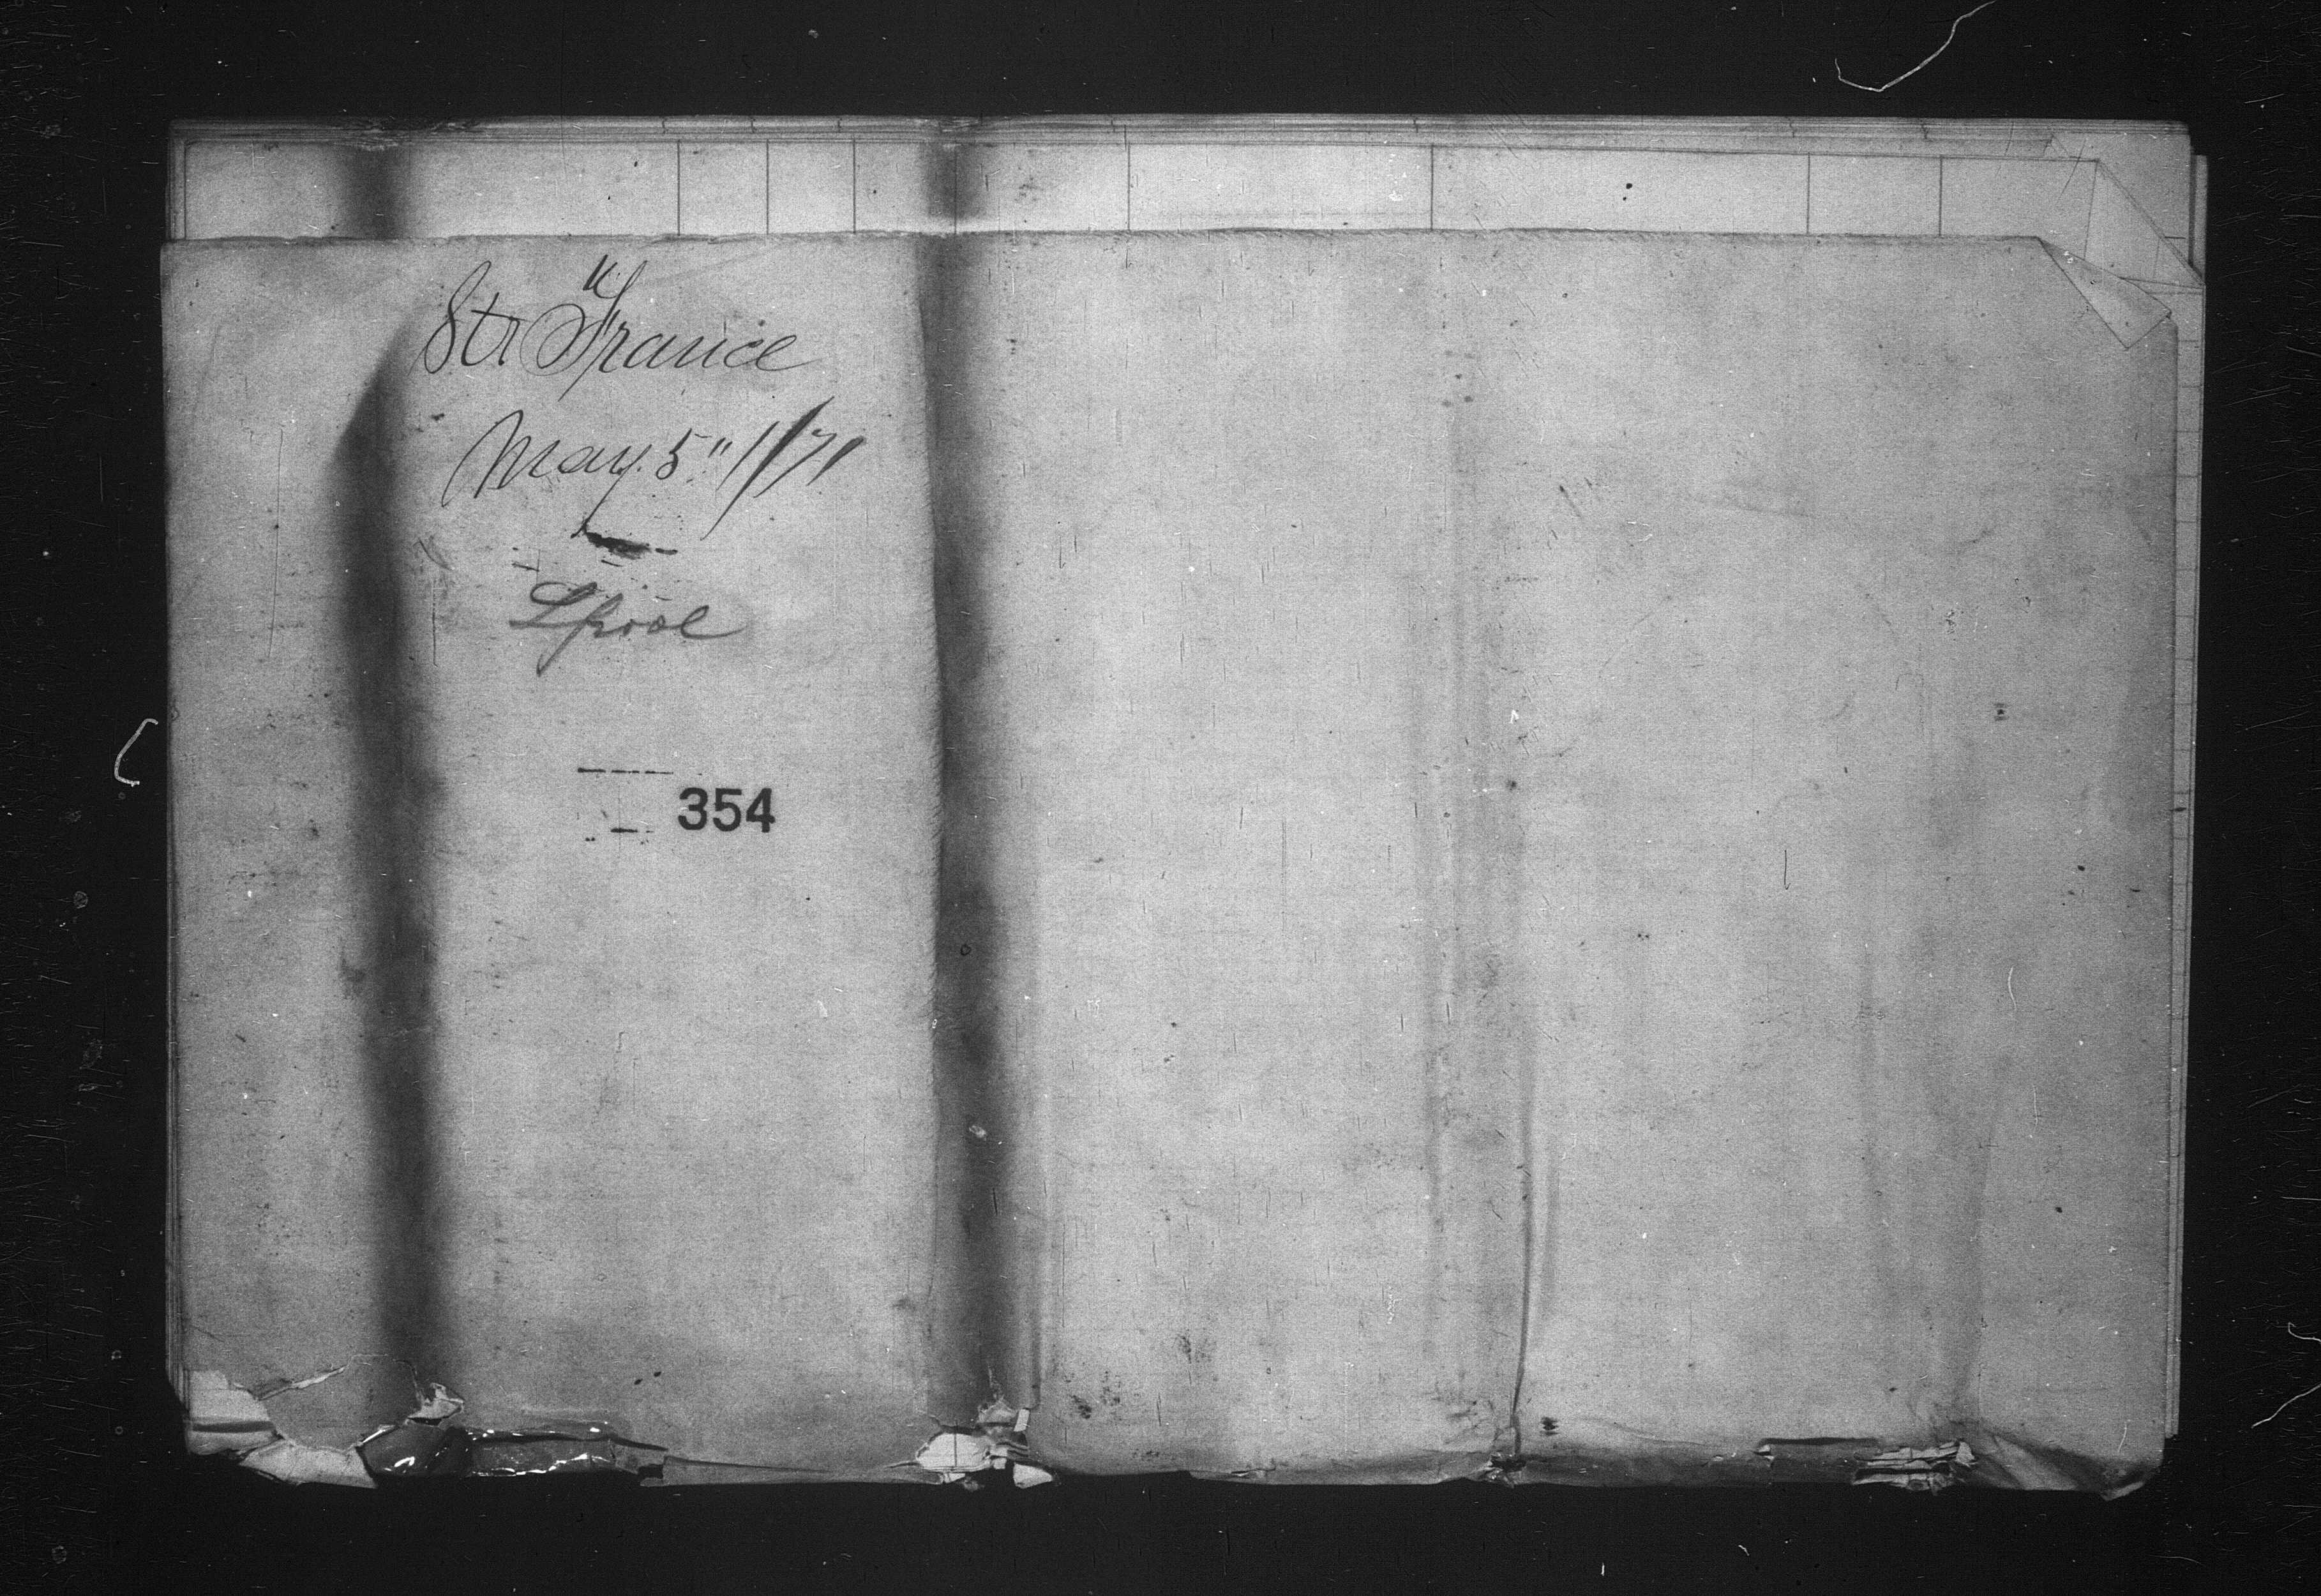 Str "France
May. 5" 1871
Lpool
354